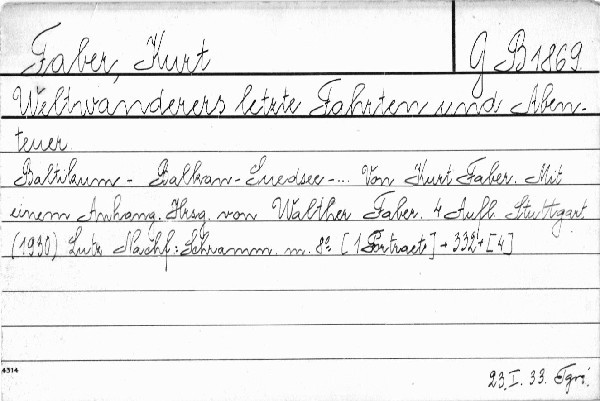 Faber, Kurt
G B 1869
Weltwanderers letzte Fahrten und Aben-
teuer.
Baltikum - Balkan - Suedsee - ... Von Kurt Faber. Mit
einem Anhang. Hrsg. von Walther Faber. 4 Aufl. Stuttgart
(1930) Lutz Nachf: Schramm. m. 8° [1 Portraet] + 332 + [4]
4314
23. I. 33.